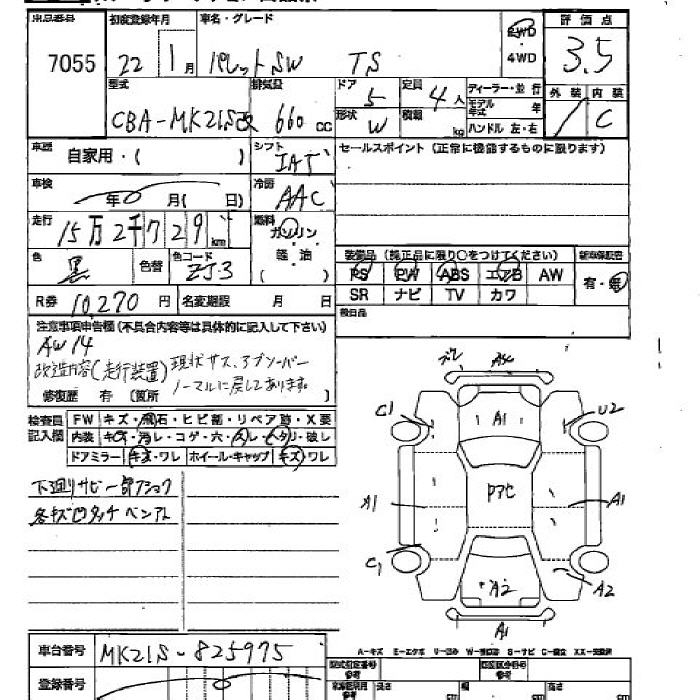 出品番号 初度登録年月 車名・グレード 評価点
7055 22 1月 パレットSW TS 2WD 4WD 3.5
型式 排気量 ドア 定員 ディーラー・並行 外装 内装
CBA-MK21S改 660cc 5 4人 モデル年式 年 / C
形状 W 積載 kg ハンドル 左・右
車歴 自家用・( ) シフト IAT セールスポイント (正常に機能するものに限ります)
車検 年0月( 日) 冷房 AAC
走行 15万2千729km 燃料 ガソリン 軽油 ( )
色 黒 色替 色コード ZJ3
装備品 (純正品に限り○をつけてください) 新車保証書
PS PW ABS エアB AW 有・無
SR ナビ TV カワ
R券 10,270円 名変期限 月 日
注意事項申告欄(不具合内容等は具体的に記入して下さい)
AW14
改造内容(走行装置) 現状サス、アブソーバー
ノーマルに戻してあります。
修復歴 有 (箇所 )
検査員記入欄 FW キズ・飛石・ヒビ割・リペア跡・X要
内装 キズ・汚レ・コゲ・穴・スレ・ヘタリ・破レ
ドアミラー キズ・ワレ ホイール・キャップ キズ・ワレ
下廻りサビ一部
各キズ凹タッチペンアト
A4
C1 A1 U2
A1 PアC A1
C1 A2 A2
A1
A-キズ E-エクボ U-凹み W-補修跡 S-サビ C-腐食 XX-交換済
車台番号 MK21S-825975
登録番号
型式指定番号 参考
類別区分番号 参考
長さ cm 幅 cm 高さ cm